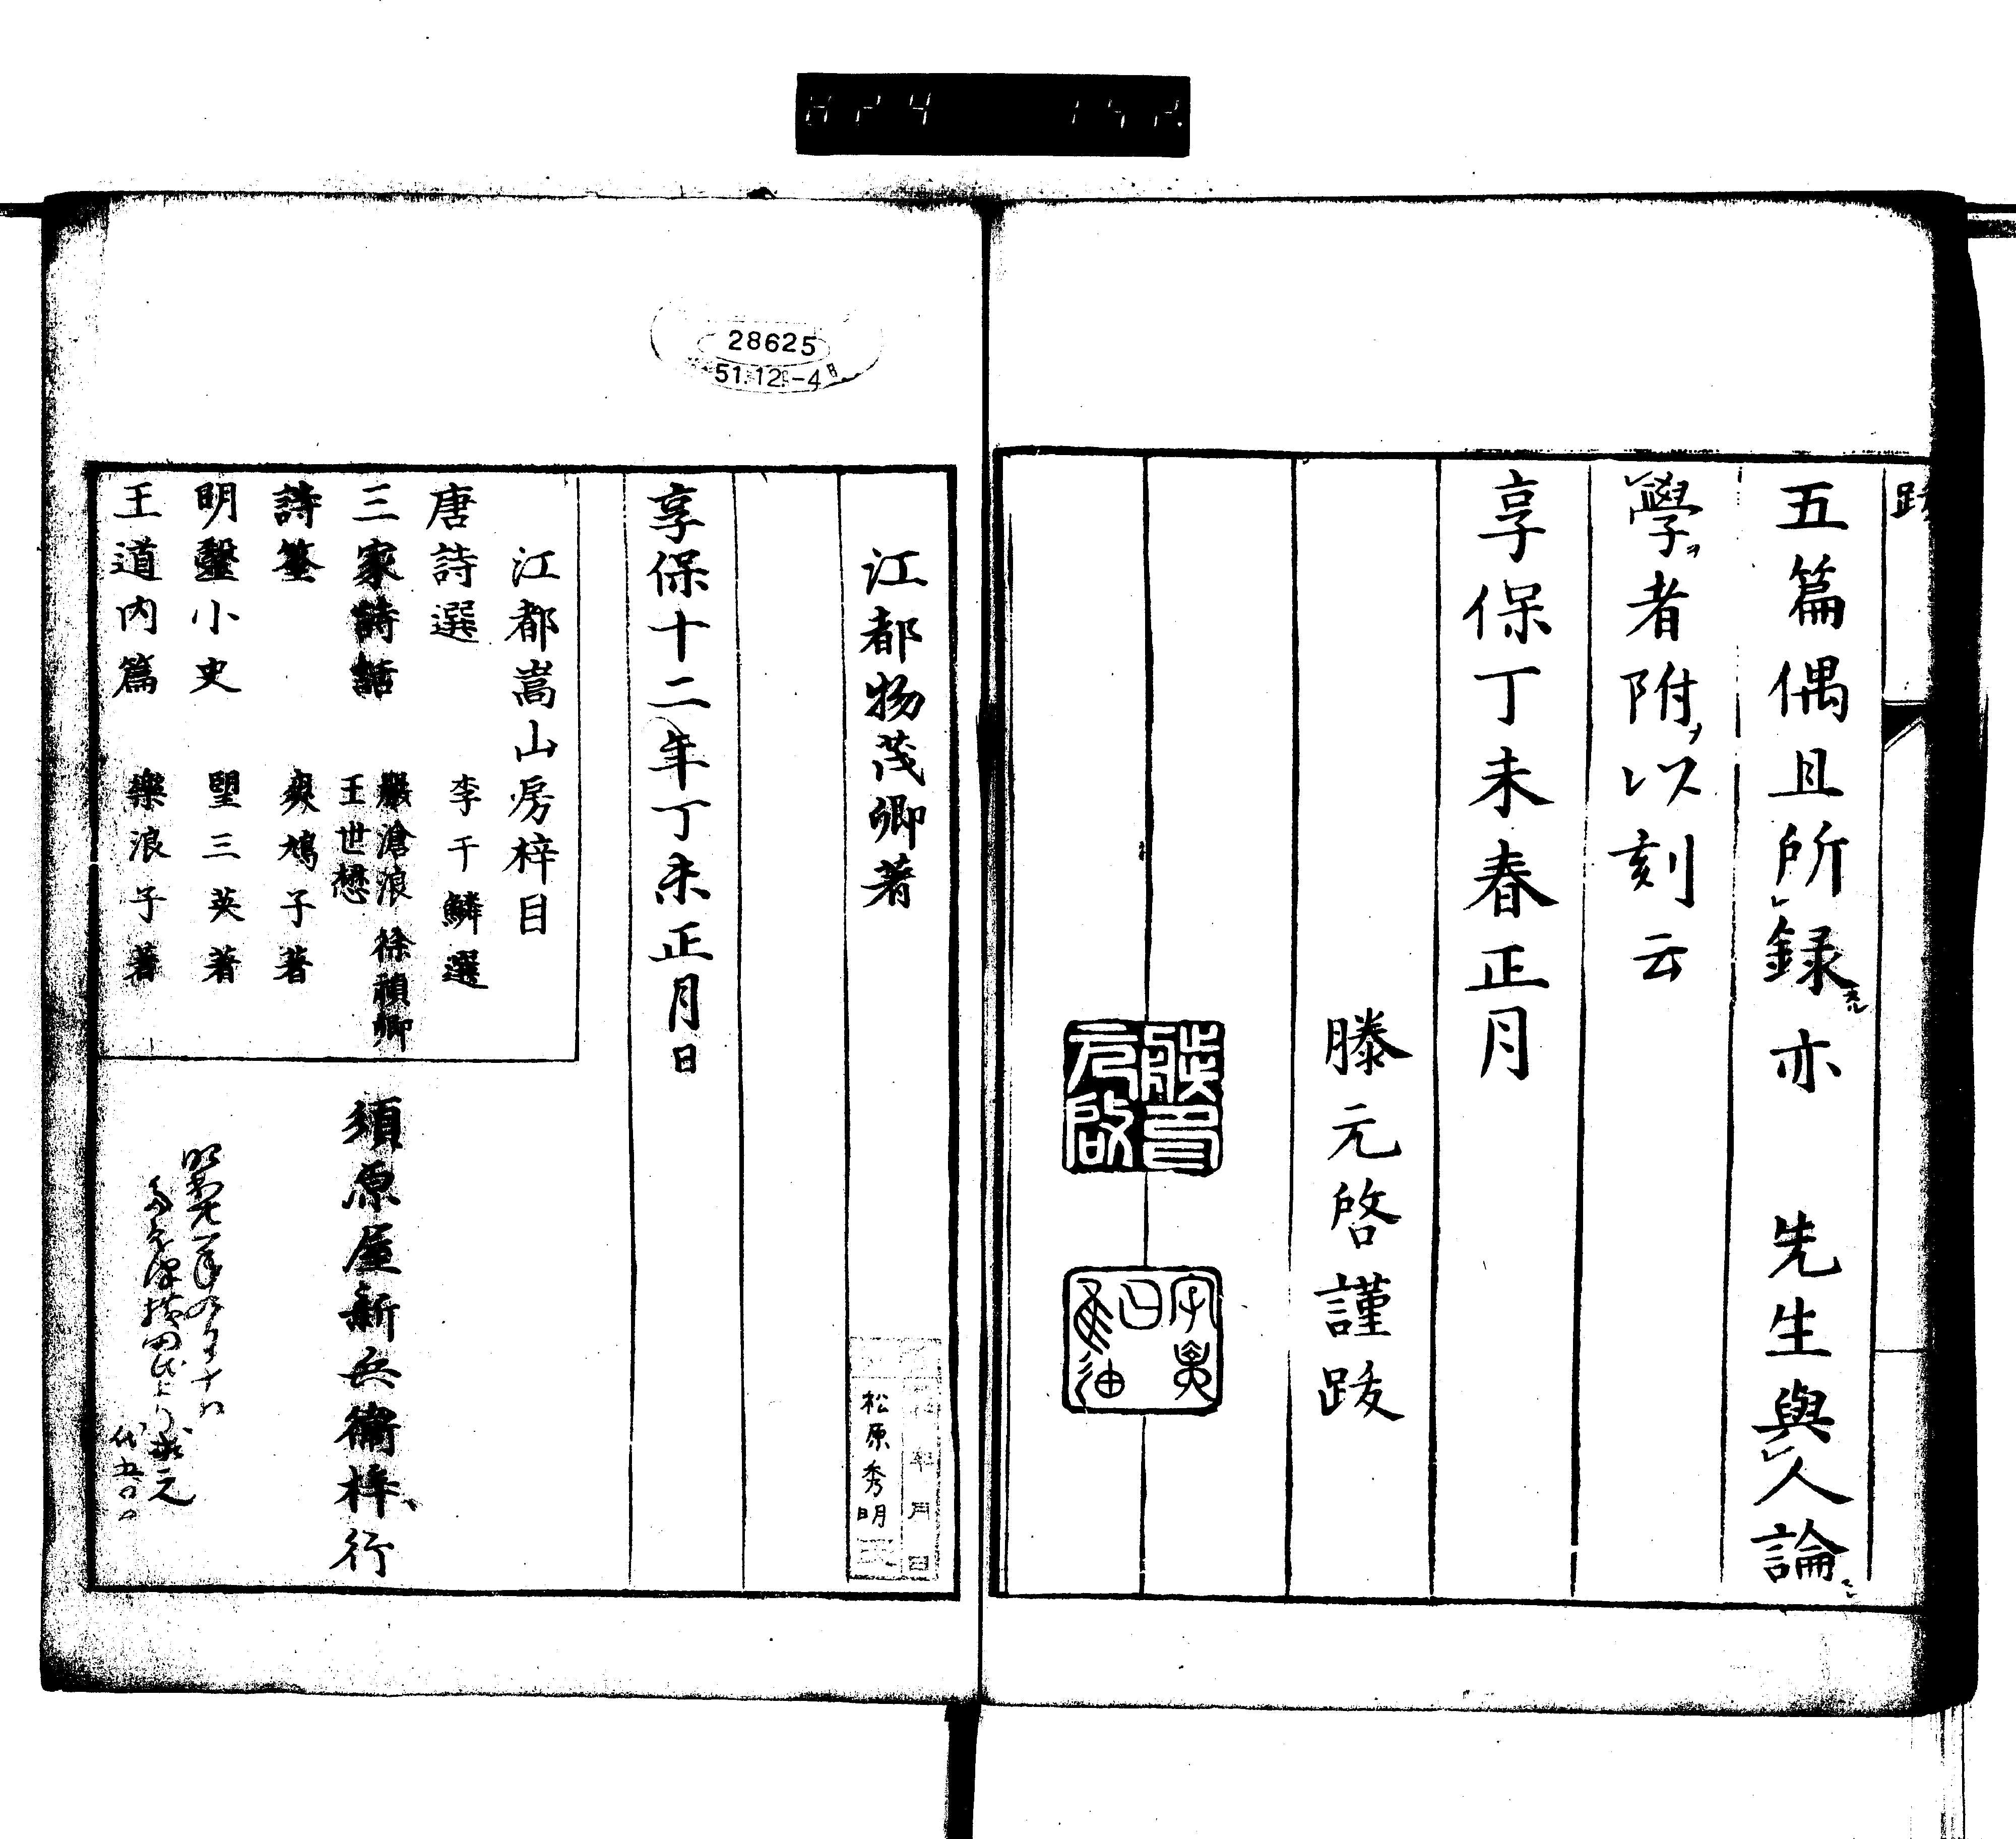 跋
五篇偶且所録亦　先生與人論
學者附以刻云
享保丁未春正月
滕元啓謹跋
滕印元啓
江都物茂卿著
享保十二年丁未正月日
江都嵩山房梓目
唐詩選　李于鱗選
三家詩話　嚴滄浪　徐禎卿　王世懋
詩筌　爽鳩子著
明醫小史　望三英著
王道内篇　樂浪子著
須原屋新兵衞梓行
28625
51.12.-4
年月日
松原秀明